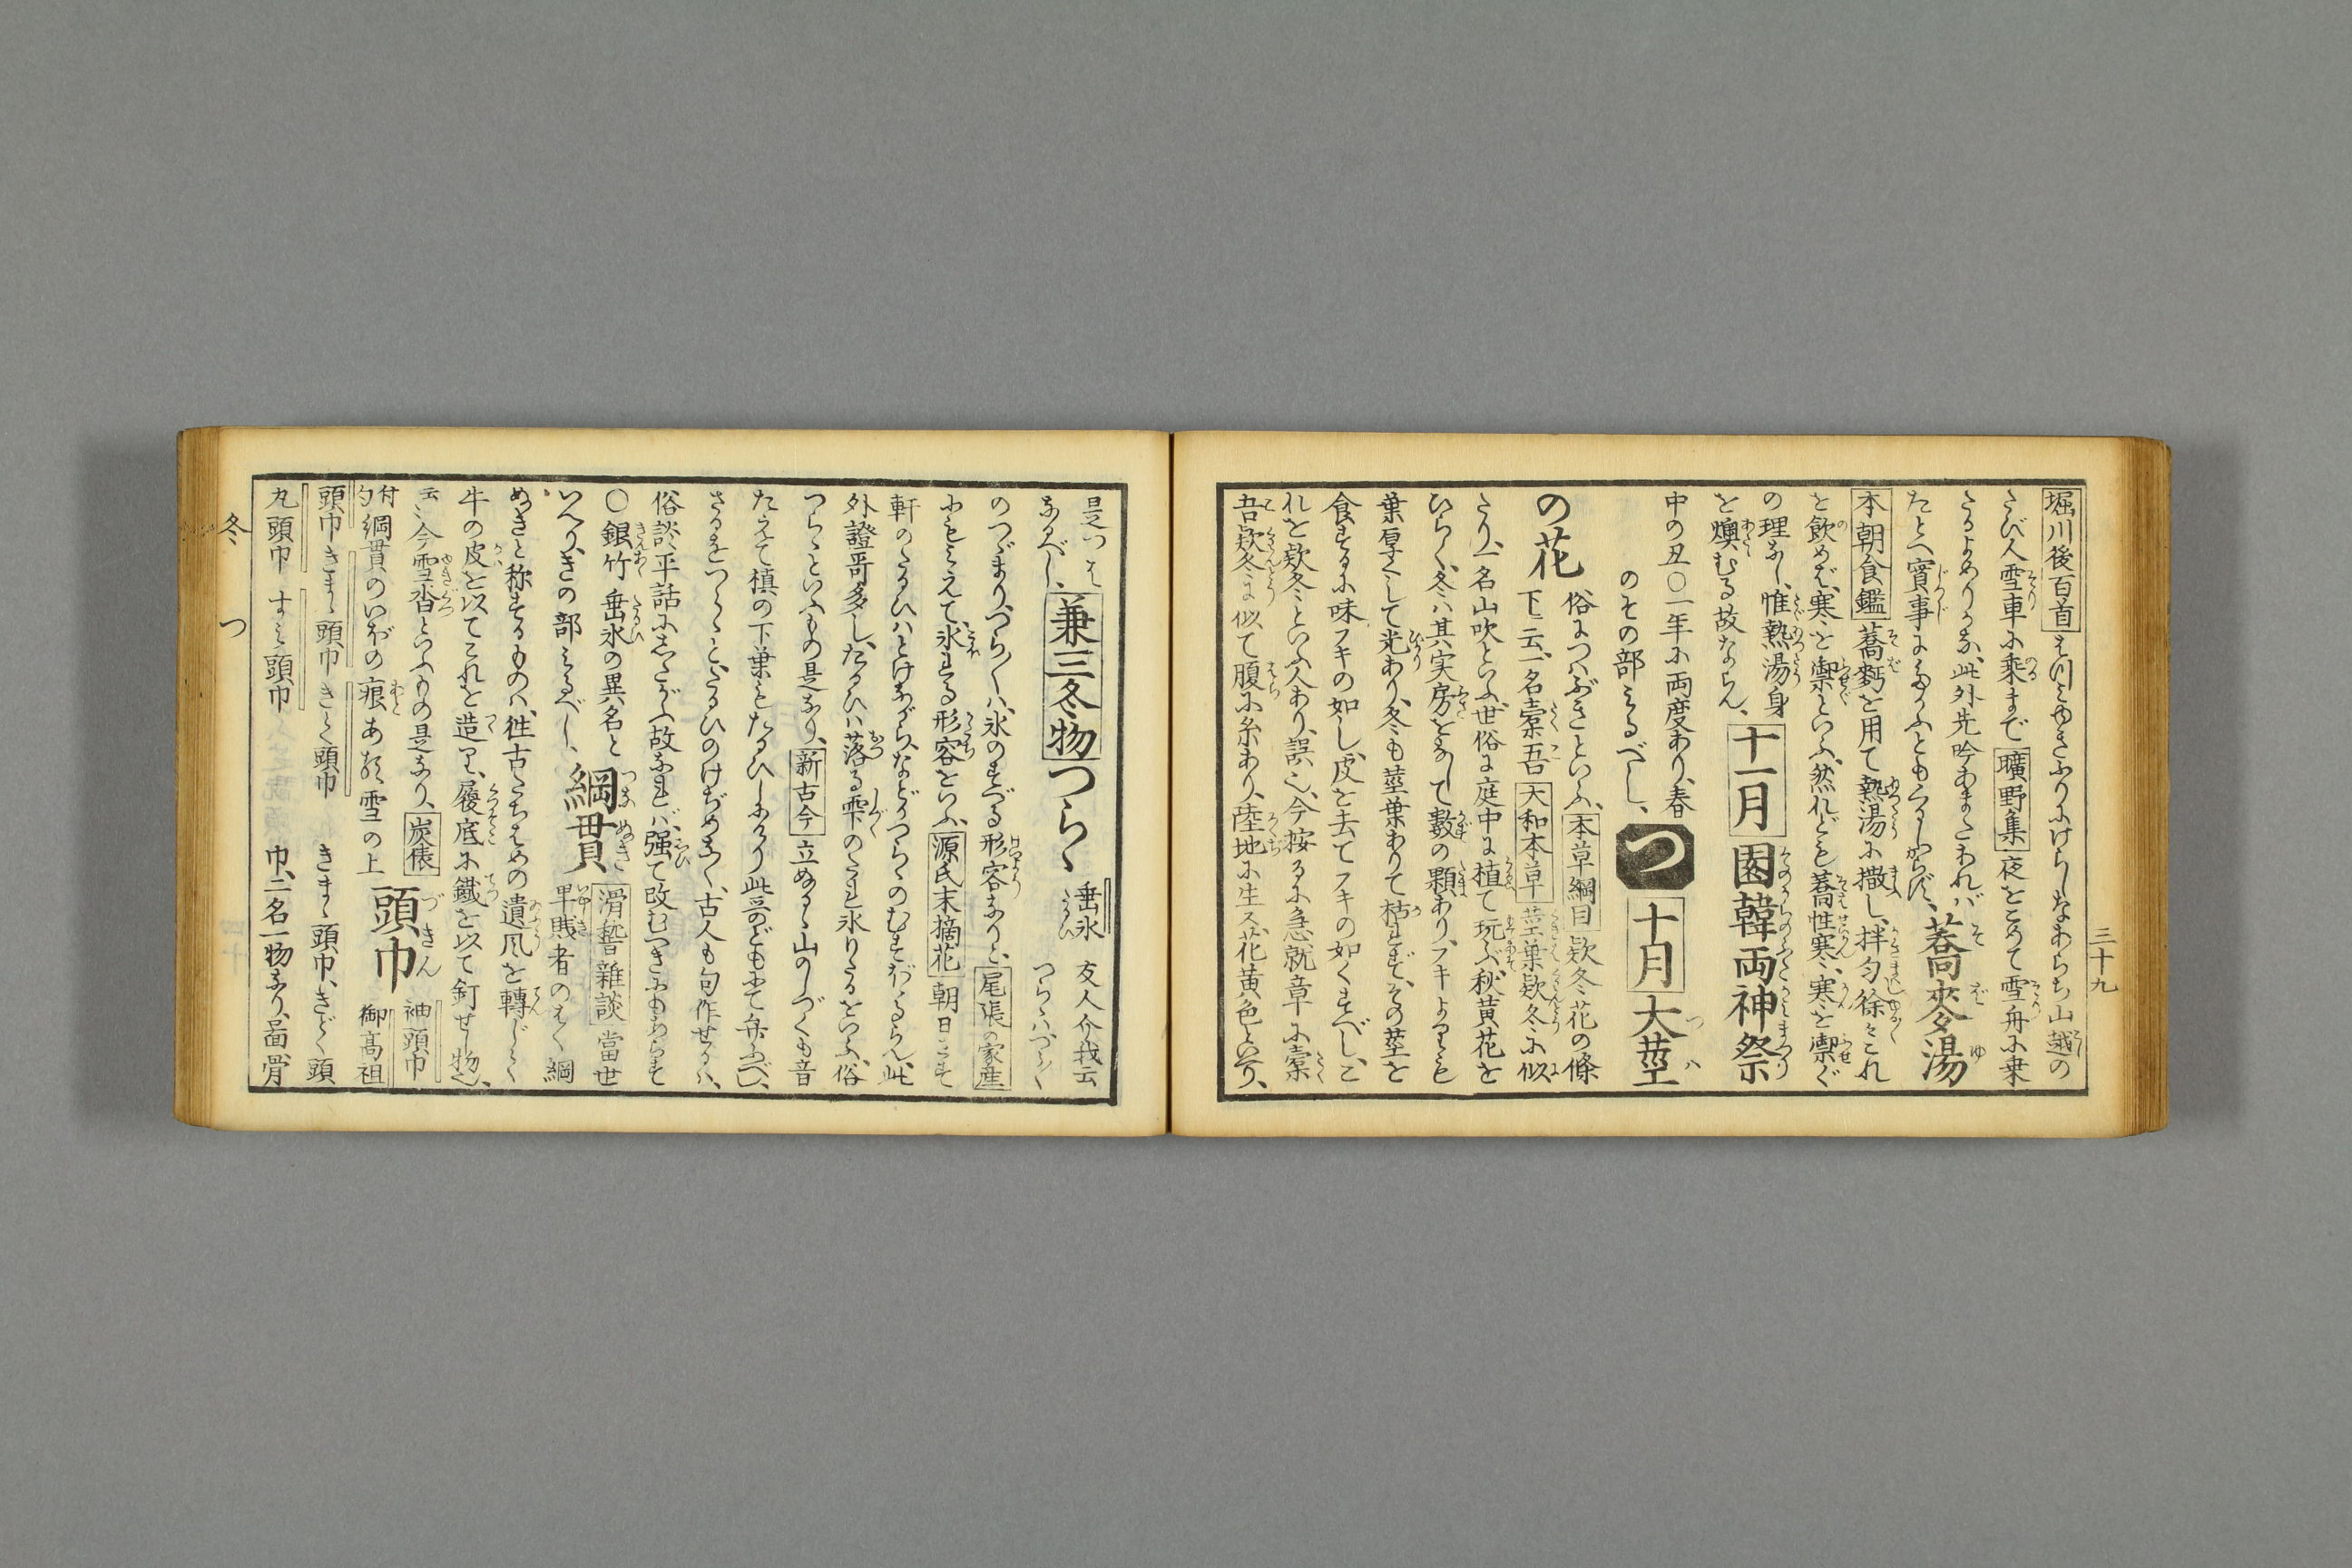 三十九
堀川後百首 はつみゆきふりにけらしなあらち山越の
たび人雪車に乗まで 曠野集 夜とゝめて雪舟に乗
たるよめりかな、此外先吟あまたあれバ 蕎麥湯
たとへ實事にたがふともくるしからず、
本朝食鑑 蕎麪を用て熱湯に撒し、拌匀徐々これ
を飲めば、寒を禦といふ、然れども蕎性寒、寒を禦ぐ
の理なし、惟熱湯身
を燠むる故ならん、 十一月 園韓両神祭
中の丑〇一年に両度あり、春
のその部みるべし、 つ 十月 大莖
の花 俗につハぶきといふ、本草綱目 欵冬花の條
下ニ云、一名橐吾 大和本草 莖葉欵冬に似
たり、一名山吹といふ、世俗に庭中に植て玩ぶ、秋黄花を
ひらく、冬ハ其実房をなして數の顆あり、フキよりも
葉厚くして光あり、冬も莖葉ありて枯れず、その莖を
食するに味フキの如し、皮を去てフキの如くすべし、こ
れを欵冬といふ人あり、誤也、今按るに急就章に橐
吾欵冬に似て腹に糸あり、陸地に生ス、花黄色といへり、
是つは
なるべし、 兼三冬物 つらゝ 垂氷 友人介我云 つらゝハつらく
のつゞまり、つらくハ氷のすべる形容なりと、尾張の家産
にもみえて、氷れる形容をいふ、源氏末摘花 朝日さす
軒のたるひハとけながらなどかつらゝのむすぼゝるらん、此
外證哥多し、たるひハ落る雫のたれ氷りたるをいふ、俗
つらゝといふもの是なり、新古今 立ぬるゝ山のしづくも音
たえて槙の下葉もたるひしにけり、此哥どもにて弁ふべし、
さるをつらゝと、たるひのけぢめなく、古人も句作せるハ、
俗談平話にしたがふ故なれバ、强て改むべきにもあらず
〇銀竹 垂氷の異名と
いへり、きの部みるべし、 綱貫 滑䅲雜談 當世 早賎者のはく綱
ぬきと称するものハ、徃古たちはめの遺風を轉じたく
牛の皮を以てこれを造り、履底に鐵を以て釘せし物也、
云々今雪沓といふもの是なり、炭俵
付句 綱貫のいぼの痕ある雪の上 頭巾 袖頭巾 御高祖
頭巾 きまゝ頭巾 きとく頭巾 きまゝ頭巾、きどく頭
丸頭巾 すみ頭巾 巾、二名一物なり、畾骨
冬 つ